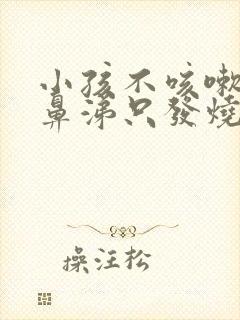 小孩不咳嗽
鼻涕只發燒
操汪松